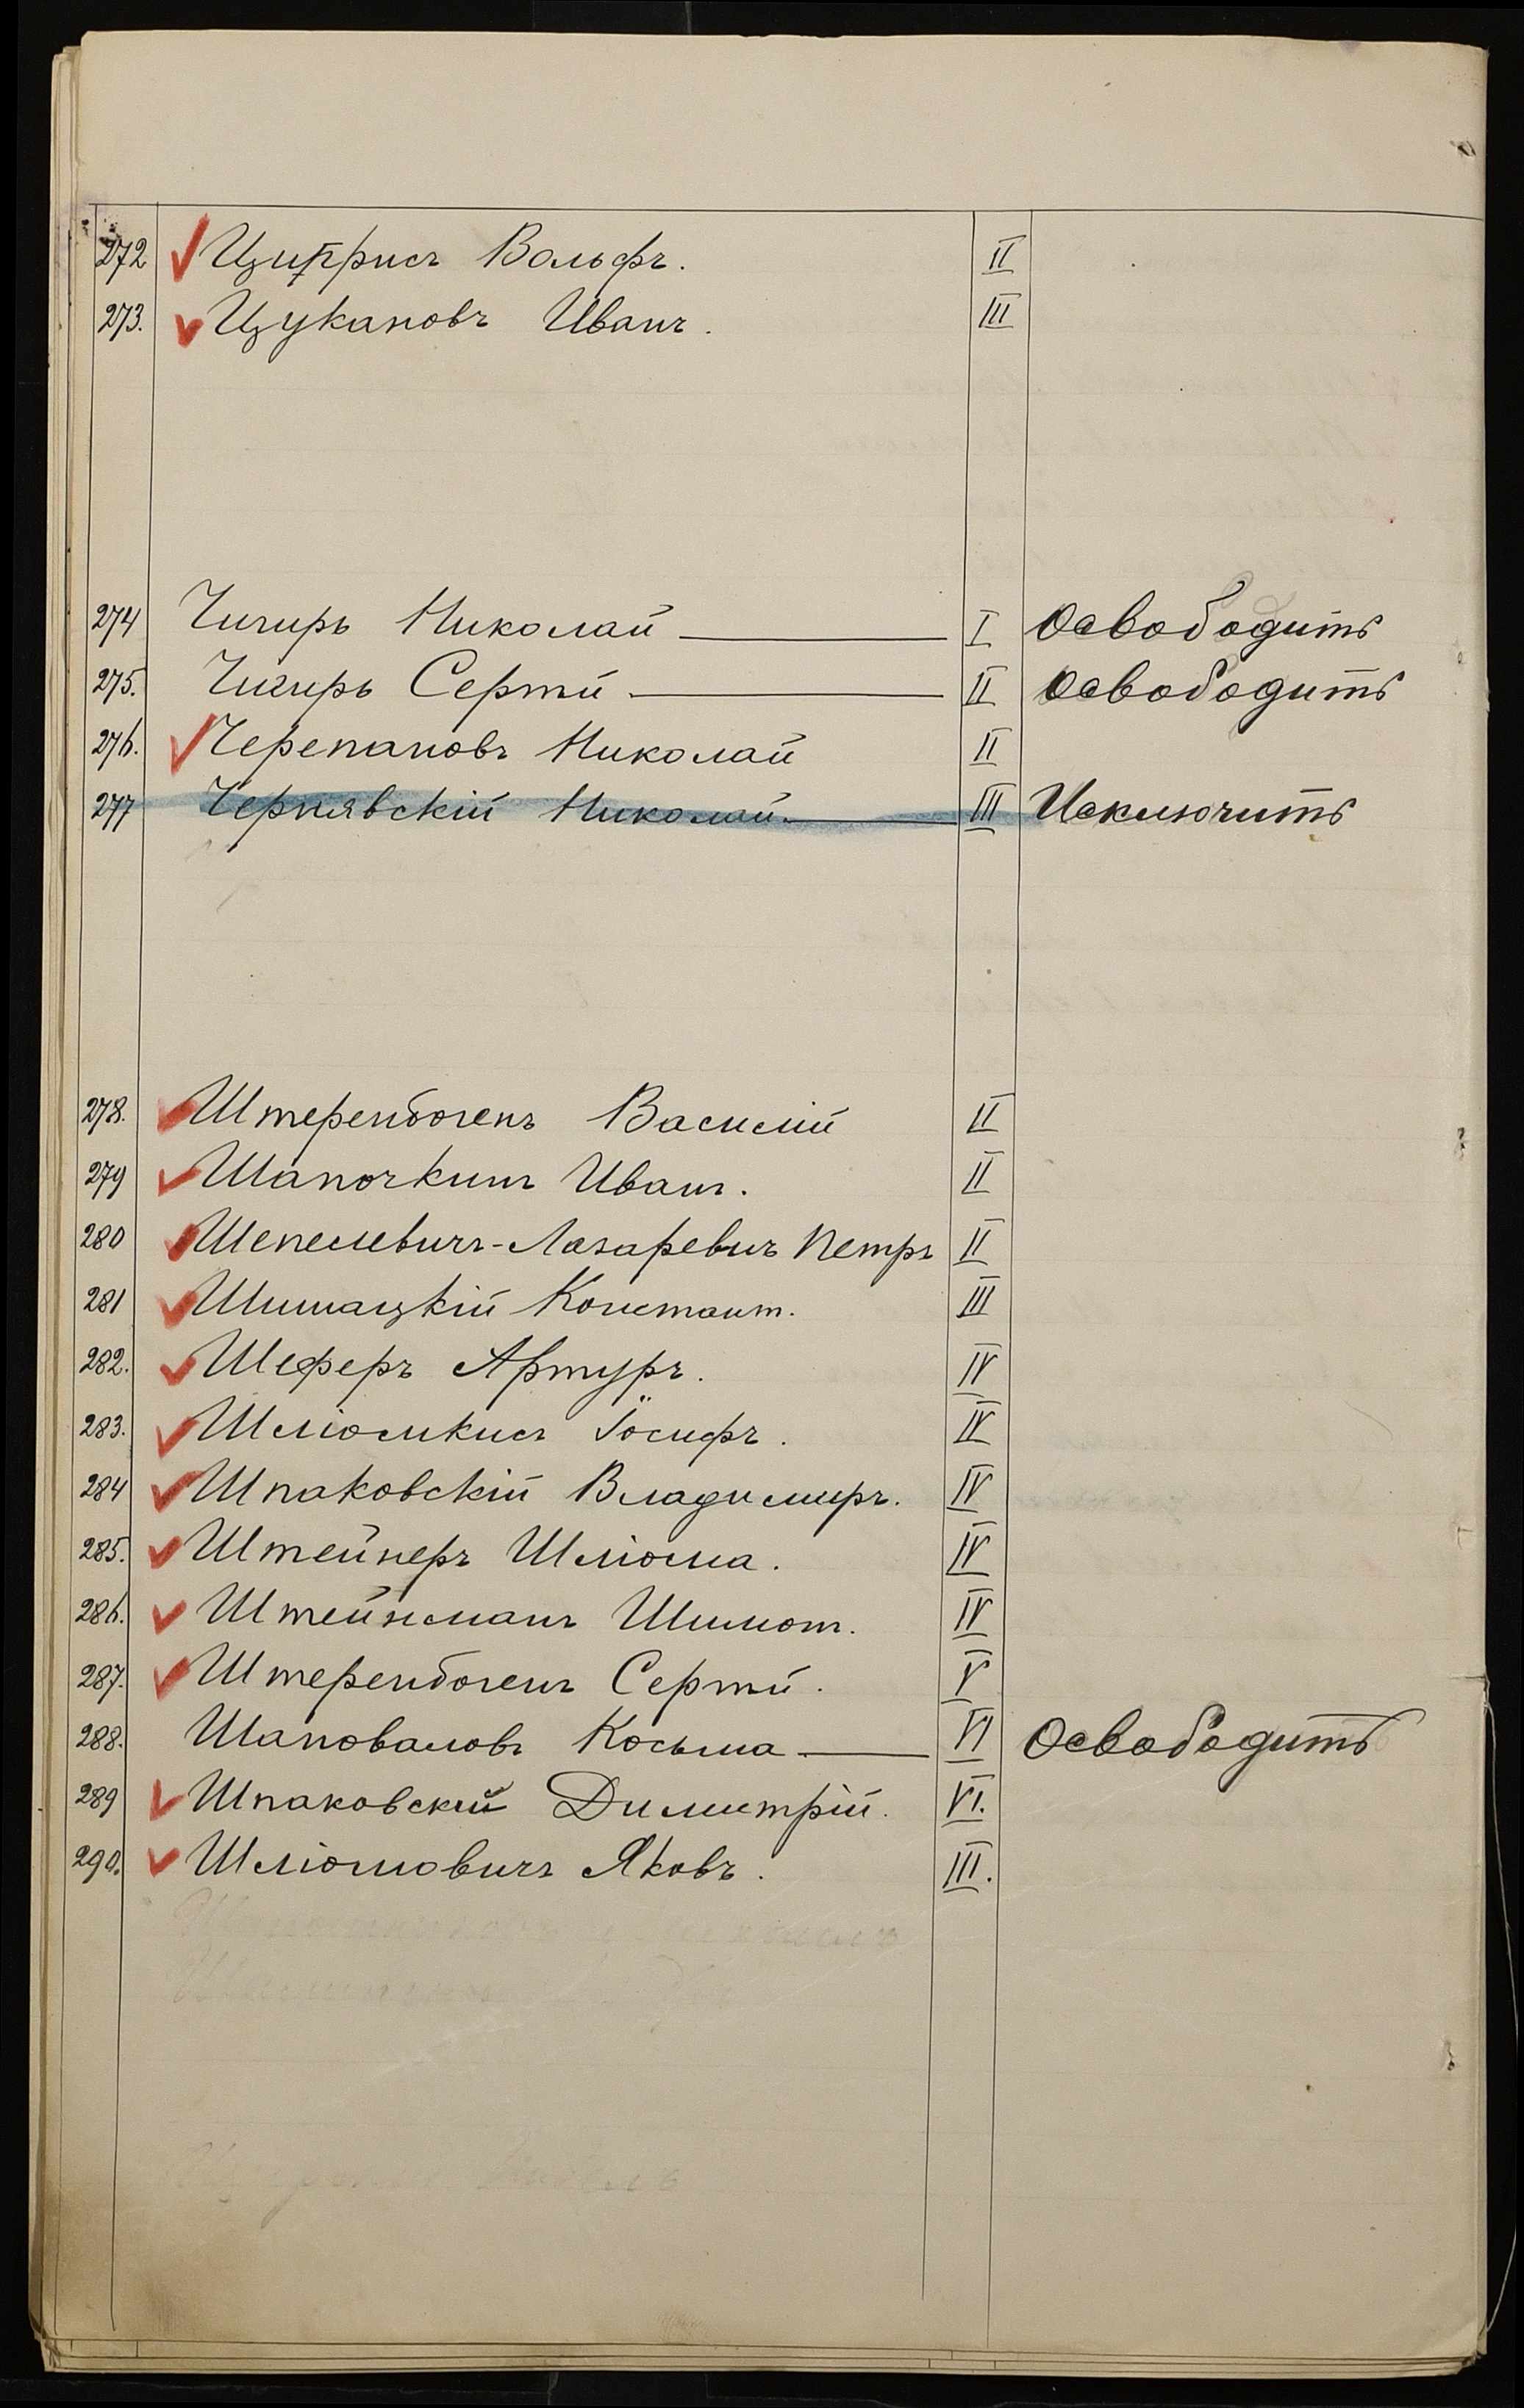 272 Циприсъ Вольфъ. II
273. Цукановъ Иванъ. III
274 Чигирь Николай I Освободить
275. Чигирь Сергѣй II Освободить
276. Черепановъ Николай II
277 Чернявскій Николай III Исключить
278. Штеренбогенъ Василій II
279 Шапочкинъ Иванъ. II
280 Шепелевичъ-Лазаревичъ Петръ II
281 Шишацкій Константин. III
282. Шеферъ Артуръ. IV
283. Шліомкисъ Іосифъ. IV
284 Шпаковскій Владимиръ. IV
285. Штейнеръ Шліома. IV
286. Штейнманъ Шимон. IV
287. Штеренбогенъ Сергѣй. V
288. Шаповаловъ Косьма VI Освободить
289 Шпаковский Димитрій. VI.
290. Шліомовичъ Яковъ. III.